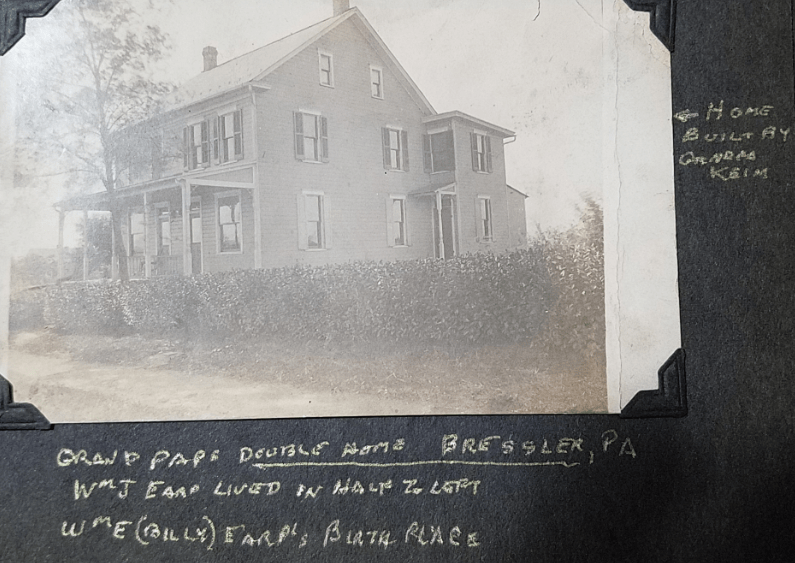 ← HOME
BUILT BY
GRANDPA
KEIM
GRAND PAP'S DOUBLE HOME BRESSLER, PA
Wᴹ J EARP LIVED IN HALF TO LEFT
Wᴹ E (BILLY) EARP'S BIRTH PLACE